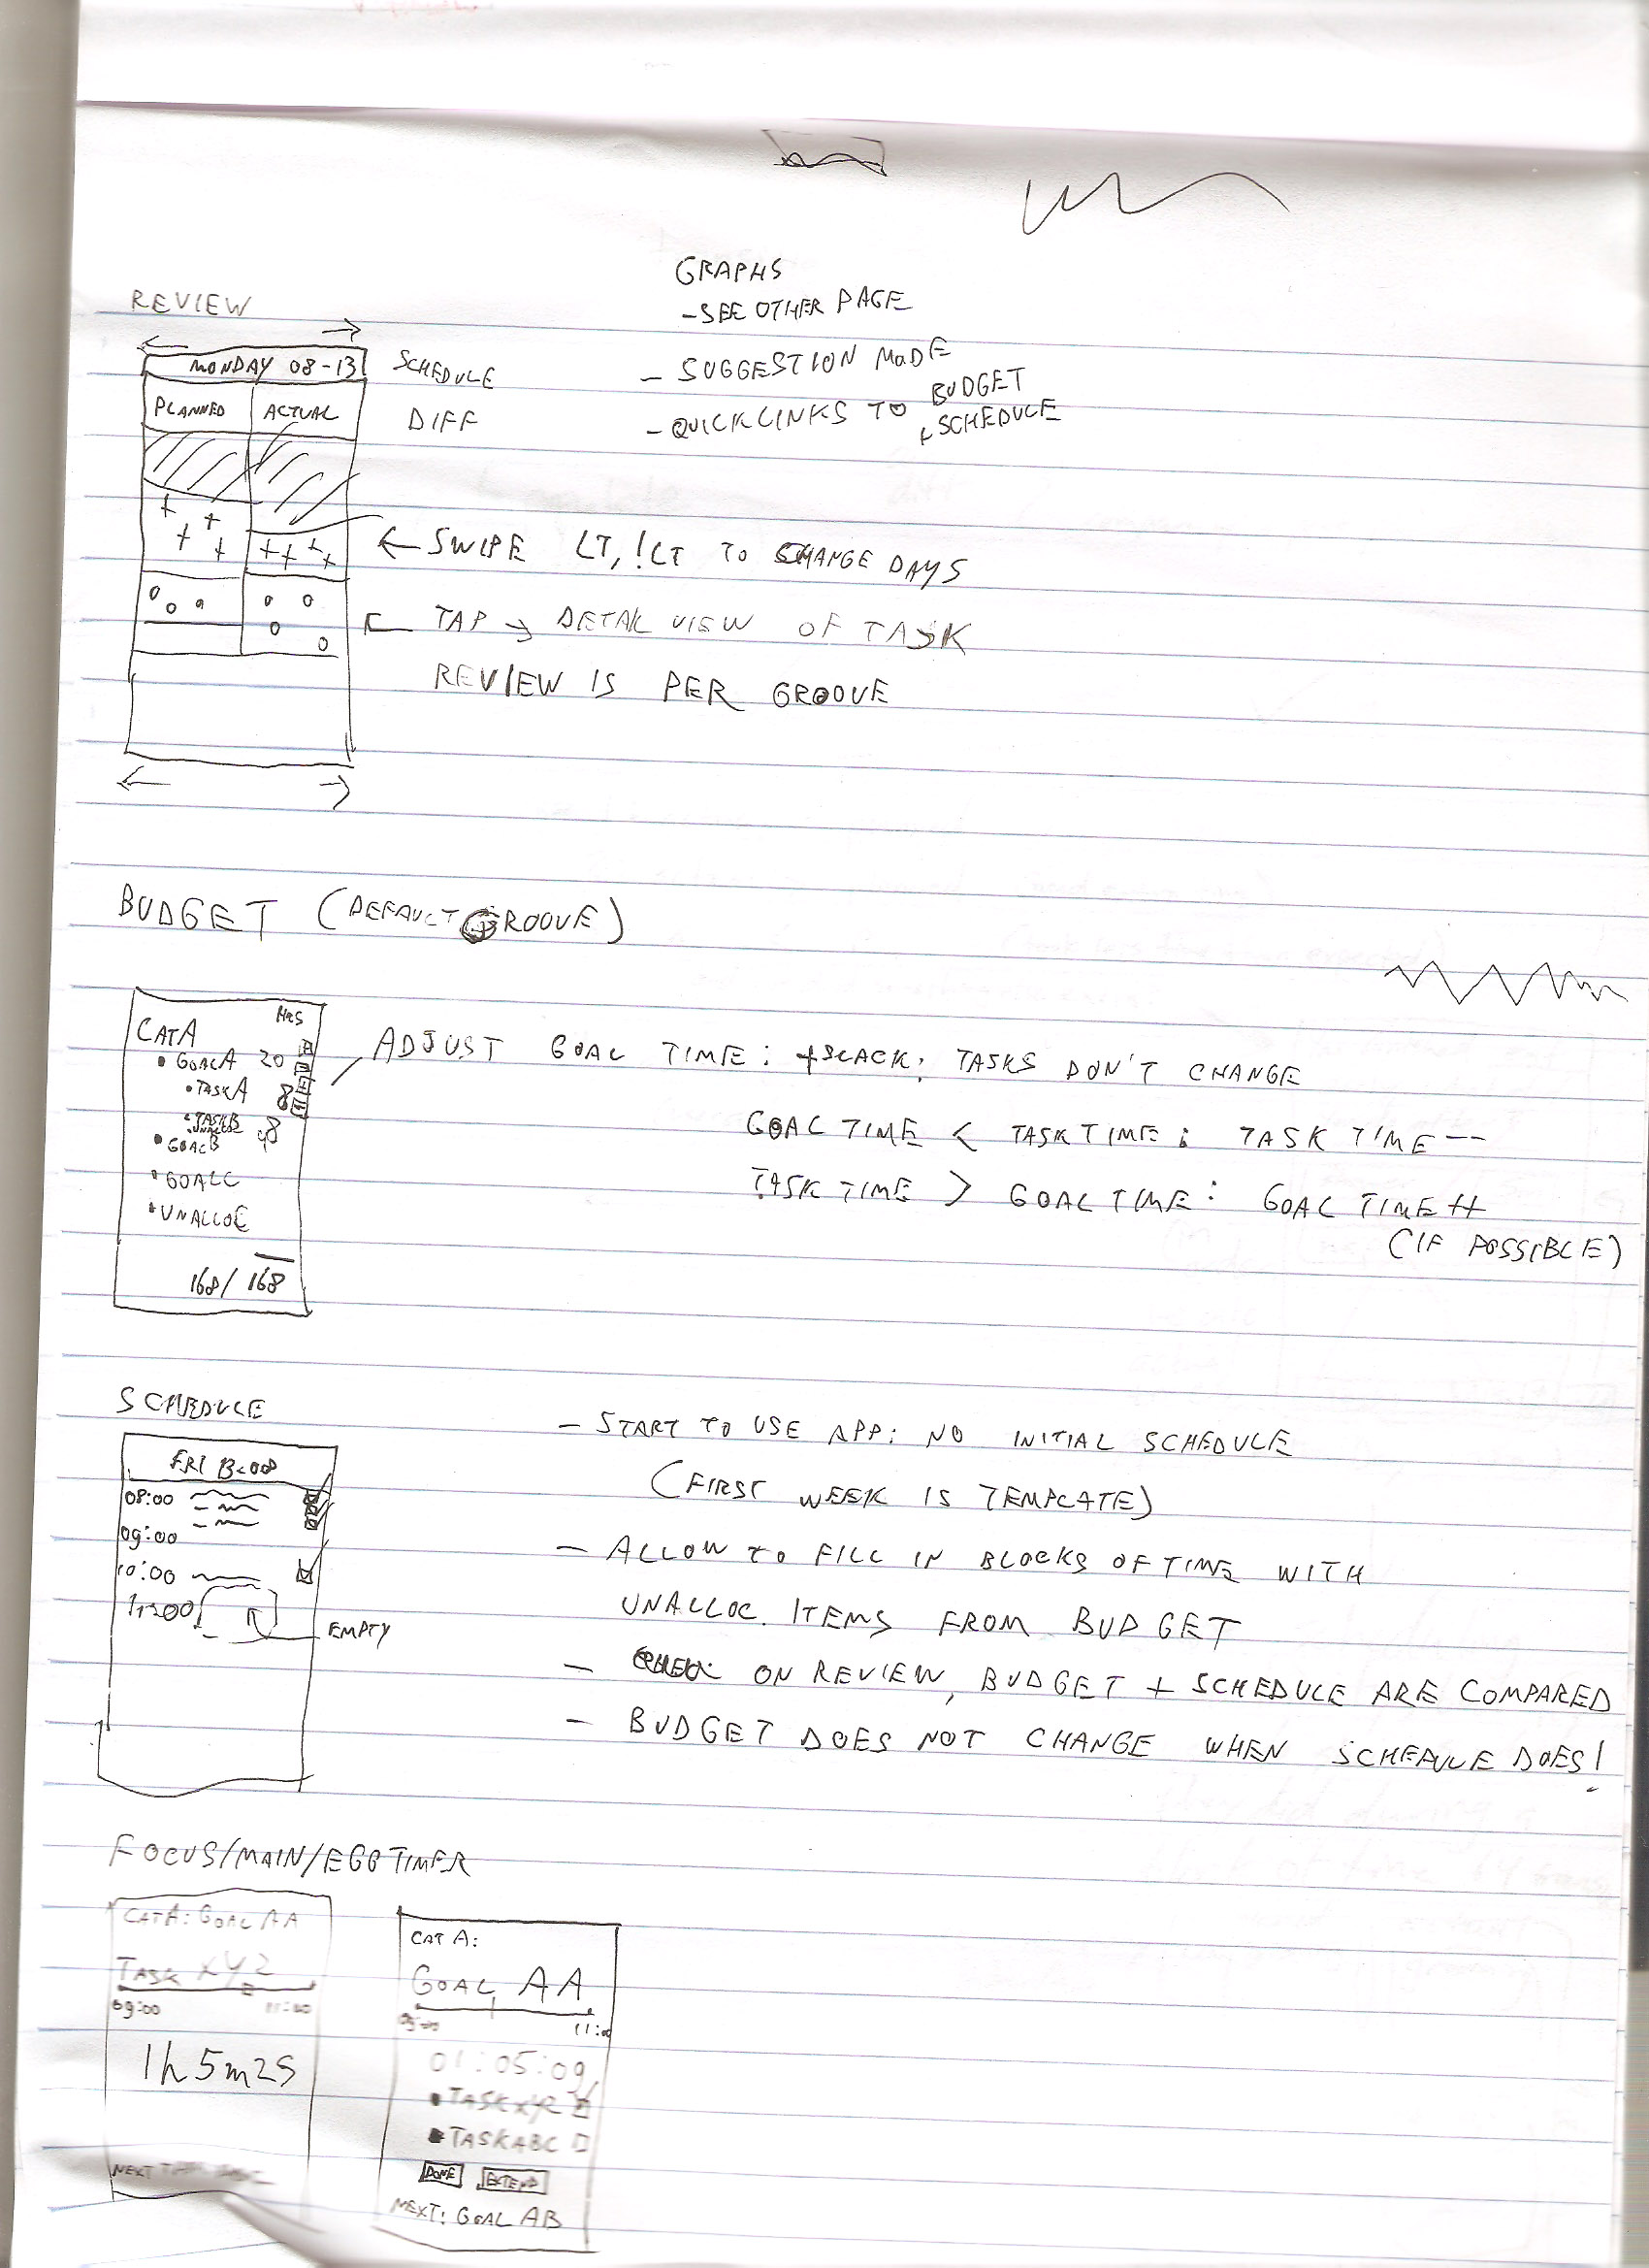 GRAPHS
- SEE OTHER PAGE
- SUGGESTION MADE
- QUICKLINKS TO BUDGET
+ SCHEDULE
REVIEW
MONDAY 08-13
PLANNED ACTUAL
SCHEDULE
DIFF
← SWIPE LT, !LT TO CHANGE DAYS
TAP → DETAIL VIEW OF TASK
REVIEW IS PER GROOVE
BUDGET (DEFAULT GROOVE)
HRS
CAT A
• GOAL A 20
• TASK A 8
• TASK B 8
UNALLOC 4
• GOAL B
• GOAL C
• UNALLOC
168/168
ADJUST GOAL TIME: +SLACK, TASKS DON'T CHANGE
GOAL TIME < TASK TIME: TASK TIME--
TASK TIME > GOAL TIME: GOAL TIME++
(IF POSSIBLE)
SCHEDULE
FRI
08:00
09:00
10:00
11:00
EMPTY
- START TO USE APP: NO INITIAL SCHEDULE
(FIRST WEEK IS TEMPLATE)
- ALLOW TO FILL IN BLOCKS OF TIME WITH
UNALLOC. ITEMS FROM BUDGET
- ON REVIEW, BUDGET + SCHEDULE ARE COMPARED
- BUDGET DOES NOT CHANGE WHEN SCHEDULE DOES!
FOCUS/MAIN/EGGTIMER
CAT A: GOAL AA
TASK XYZ
09:00 11:00
1h5m2s
NEXT
CAT A:
GOAL AA
09:00 11:00
01:05:09
• TASK
• TASK ABC
DONE EXTEND
NEXT: GOAL AB